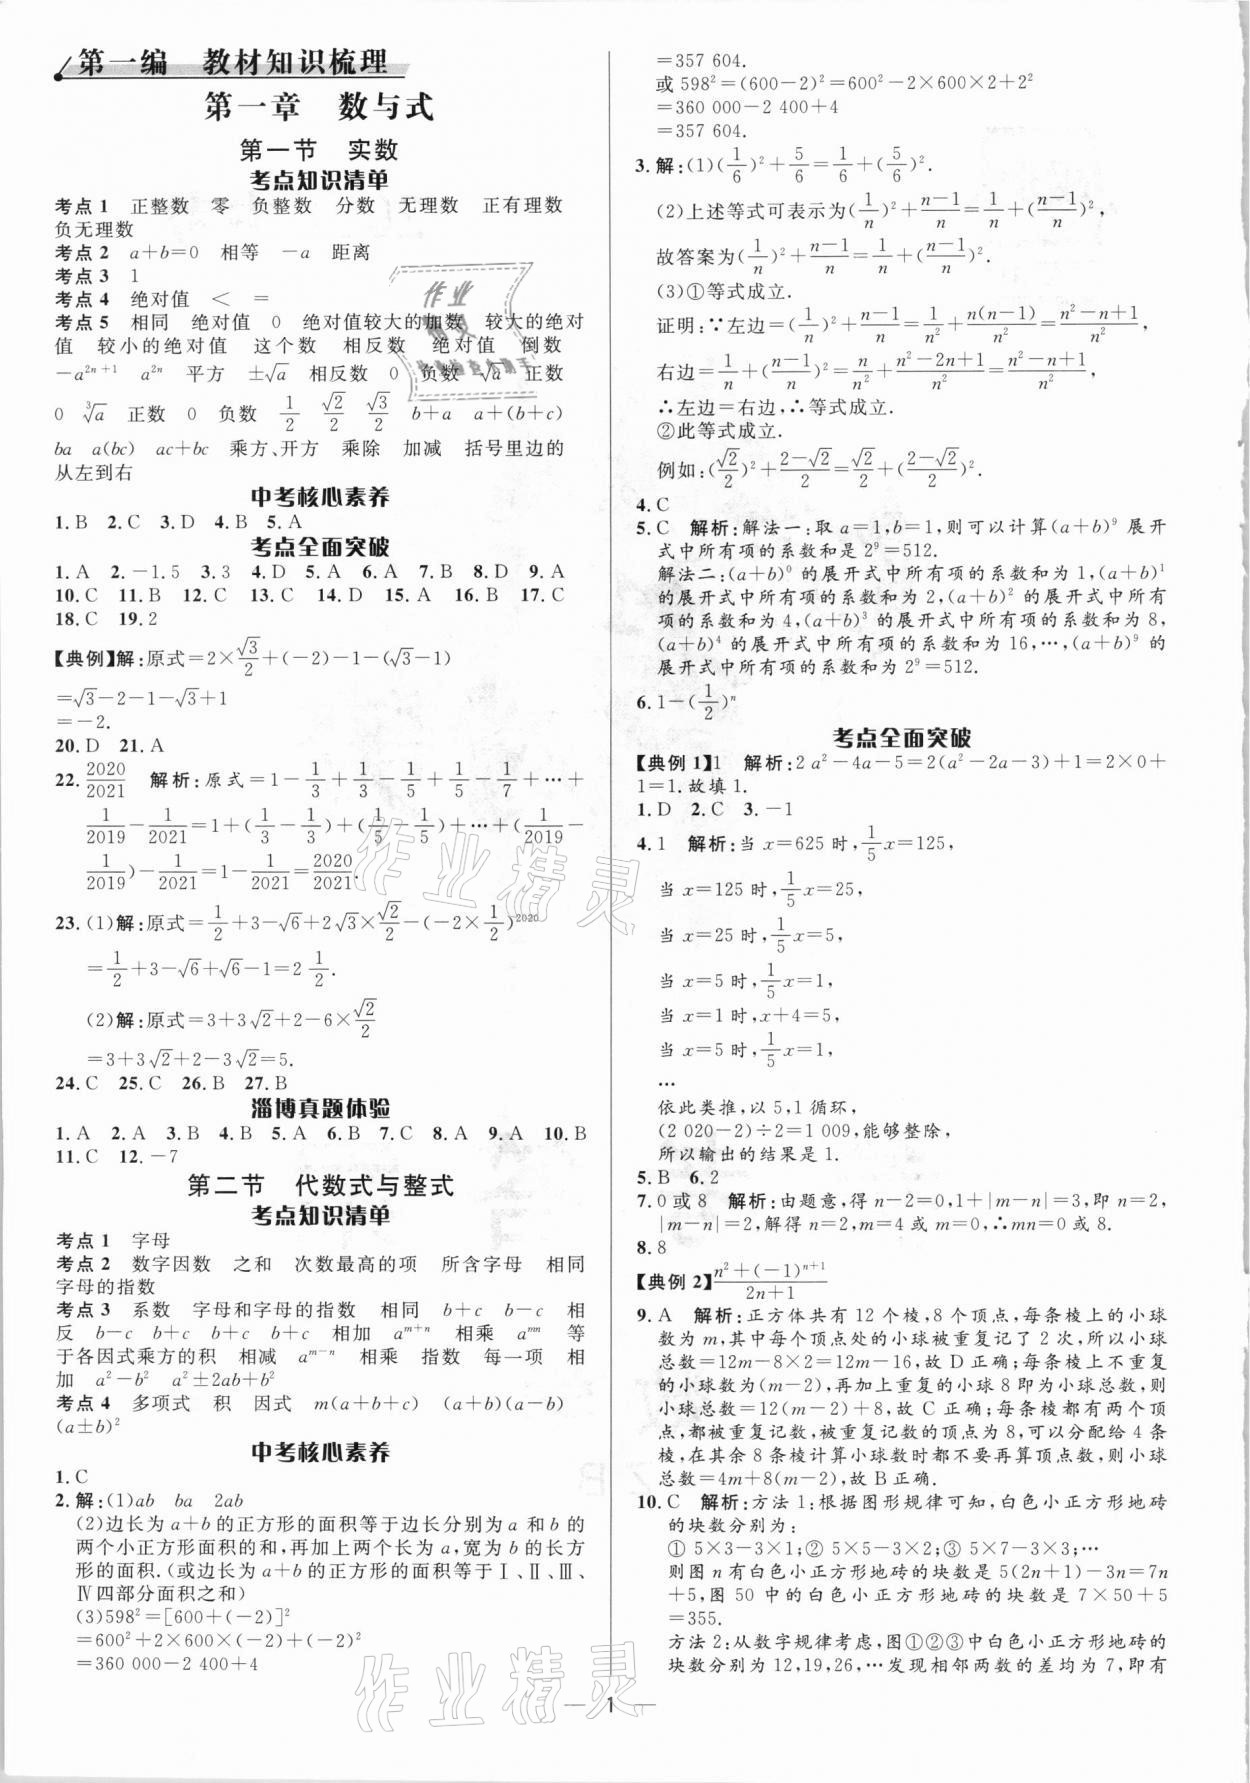 第一编　教材知识梳理
第一章　数与式
第一节　实数
考点知识清单
考点 1　正整数　零　负整数　分数　无理数　正有理数
负无理数
考点 2　a+b=0　相等　-a　距离
考点 3　1
考点 4　绝对值　<　=
考点 5　相同　绝对值　0　绝对值较大的加数　较大的绝对
值　较小的绝对值　这个数　相反数　绝对值　倒数
-a^{2n+1}　a^{2n}　平方　±√a　相反数　0　负数　√a　正数
0　∛a　正数　0　负数　1/2　√2/2　√3/2　b+a　a+(b+c)
ba　a(bc)　ac+bc　乘方、开方　乘除　加减　括号里边的
从左到右
中考核心素养
1.B　2.C　3.D　4.B　5.A
考点全面突破
1.A　2.-1.5　3.3　4.D　5.A　6.A　7.B　8.D　9.A
10.C　11.B　12.C　13.C　14.D　15.A　16.B　17.C
18.C　19.2
【典例】解:原式=2×√3/2+(-2)-1-(√3-1)
=√3-2-1-√3+1
=-2.
20.D　21.A
22.2020/2021　解析:原式=1-1/3+1/3-1/5+1/5-1/7+…+
1/2019-1/2021=1+(1/3-1/3)+(1/5-1/5)+…+(1/2019-
1/2019)-1/2021=1-1/2021=2020/2021.
23.(1)解:原式=1/2+3-√6+2√3×√2/2-(-2×1/2)^{2020}
=1/2+3-√6+√6-1=2 1/2.
(2)解:原式=3+3√2+2-6×√2/2
=3+3√2+2-3√2=5.
24.C　25.C　26.B　27.B
淄博真题体验
1.A　2.A　3.B　4.B　5.A　6.B　7.C　8.A　9.A　10.B
11.C　12.-7
第二节　代数式与整式
考点知识清单
考点 1　字母
考点 2　数字因数　之和　次数最高的项　所含字母　相同
字母的指数
考点 3　系数　字母和字母的指数　相同　b+c　b-c　相
反　b-c　b+c　b+c　b+c　相加　a^{m+n}　相乘　a^{mn}　等
于各因式乘方的积　相减　a^{m-n}　相乘　指数　每一项　相
加　a²-b²　a²±2ab+b²
考点 4　多项式　积　因式　m(a+b+c)　(a+b)(a-b)
(a±b)²
中考核心素养
1.C
2.解:(1)ab　ba　2ab
(2)边长为 a+b 的正方形的面积等于边长分别为 a 和 b 的
两个小正方形面积的和,再加上两个长为 a,宽为 b 的长方
形的面积.(或边长为 a+b 的正方形的面积等于Ⅰ、Ⅱ、Ⅲ、
Ⅳ四部分面积之和)
(3)598²=[600+(-2)]²
=600²+2×600×(-2)+(-2)²
=360 000-2 400+4
=357 604.
或 598²=(600-2)²=600²-2×600×2+2²
=360 000-2 400+4
=357 604.
3.解:(1)(1/6)²+5/6=1/6+(5/6)².
(2)上述等式可表示为(1/n)²+(n-1)/n=1/n+((n-1)/n)²,
故答案为(1/n)²+(n-1)/n=1/n+((n-1)/n)².
(3)①等式成立.
证明:∵左边=(1/n)²+(n-1)/n=1/n²+n(n-1)/n²=(n²-n+1)/n²,
右边=1/n+((n-1)/n)²=n/n²+(n²-2n+1)/n²=(n²-n+1)/n²,
∴左边=右边,∴等式成立.
②此等式成立.
例如:(√2/2)²+(2-√2)/2=√2/2+((2-√2)/2)².
4.C
5.C　解析:解法一:取 a=1,b=1,则可以计算(a+b)⁹ 展开
式中所有项的系数和是 2⁹=512.
解法二:(a+b)⁰ 的展开式中所有项的系数和为 1,(a+b)¹
的展开式中所有项的系数和为 2,(a+b)² 的展开式中所有
项的系数和为 4,(a+b)³ 的展开式中所有项的系数和为 8,
(a+b)⁴ 的展开式中所有项的系数和为 16,…,(a+b)⁹ 的
展开式中所有项的系数和为 2⁹=512.
6.1-(1/2)ⁿ
考点全面突破
【典例 1】1　解析:2a²-4a-5=2(a²-2a-3)+1=2×0+
1=1.故填 1.
1.D　2.C　3.-1
4.1　解析:当 x=625 时,1/5x=125,
当 x=125 时,1/5x=25,
当 x=25 时,1/5x=5,
当 x=5 时,1/5x=1,
当 x=1 时,x+4=5,
当 x=5 时,1/5x=1,
…
依此类推,以 5,1 循环,
(2 020-2)÷2=1 009,能够整除,
所以输出的结果是 1.
5.B　6.2
7.0 或 8　解析:由题意,得 n-2=0,1+|m-n|=3,即 n=2,
|m-n|=2,解得 n=2,m=4 或 m=0,∴mn=0 或 8.
8.8
【典例 2】(n²+(-1)^{n+1})/(2n+1)
9.A　解析:正方体共有 12 个棱,8 个顶点,每条棱上的小球
数为 m,其中每个顶点处的小球被重复记了 2 次,所以小球
总数=12m-8×2=12m-16,故 D 正确;每条棱上不重复
的小球数为(m-2),再加上重复的小球 8 即为小球总数,则
小球总数=12(m-2)+8,故 C 正确;每条棱都有两个顶
点,都被重复记数,被重复记数的顶点为 8,可以分配给 4 条
棱,在其余 8 条棱计算小球数时都不要再算顶点数,则小球
总数=4m+8(m-2),故 B 正确.
10.C　解析:方法 1:根据图形规律可知,白色小正方形地砖
的块数分别为:
① 5×3-3×1;② 5×5-3×2;③ 5×7-3×3;…
则图 n 有白色小正方形地砖的块数是 5(2n+1)-3n=7n
+5,图 50 中的白色小正方形地砖的块数是 7×50+5
=355.
方法 2:从数字规律考虑,图①②③中白色小正方形地砖的
块数分别为 12,19,26,…发现相邻两数的差均为 7,即有
1
作业精灵
作业精灵